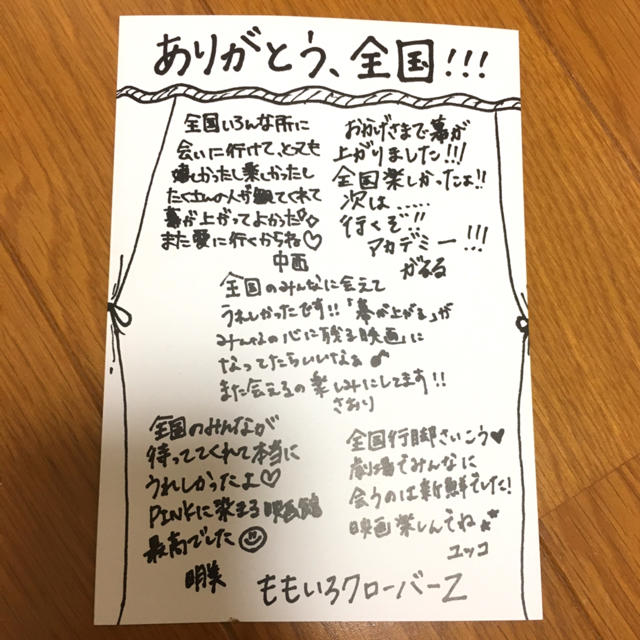 ありがとう、全国!!!
全国いろんな所に
会いに行けて、とても
嬉しかったし楽しかったし
たくさんの人が観てくれて
幕が上がってよかった
また愛に行くからね♡
中西
おかげさまで幕が
上がりました!!!
全国楽しかったよ!!
次は......
行くぞ!!
アカデミー!!!
がるる
全国のみんなに会えて
うれしかったです!!「幕が上がる」が
みんなの心に残る映画」に
なってたらいいなぁ
また会えるの楽しみにしてます!!
さおり
全国のみんなが
待っててくれて本当に
うれしかったよ♡
PINKに染まる映画館
最高でした
明美
全国行脚さいこう♥
劇場でみんなに
会うのは新鮮でした!
映画楽しんでね
ユッコ
ももいろクローバーZ